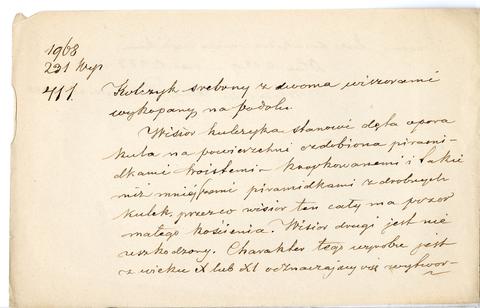 1968
231 Wyp
411.
Kolczyk srebrny z dwoma wisiorami
wykopany na Podolu.
Wisior kulczyka stanowi dęta spora
kula na powierzchni ozdobiona pirami-
dkami troistemi kropkowanemi i takie
niż mniejszemi piramidkami z drobnych
kulek, przezco wisior ten cały ma pozor
małego kościenia. Wisior drugi jest nie
uszkodzony. Charakter tego wyrobu jest
z wieku X lub XI odznaczający się wytwor-